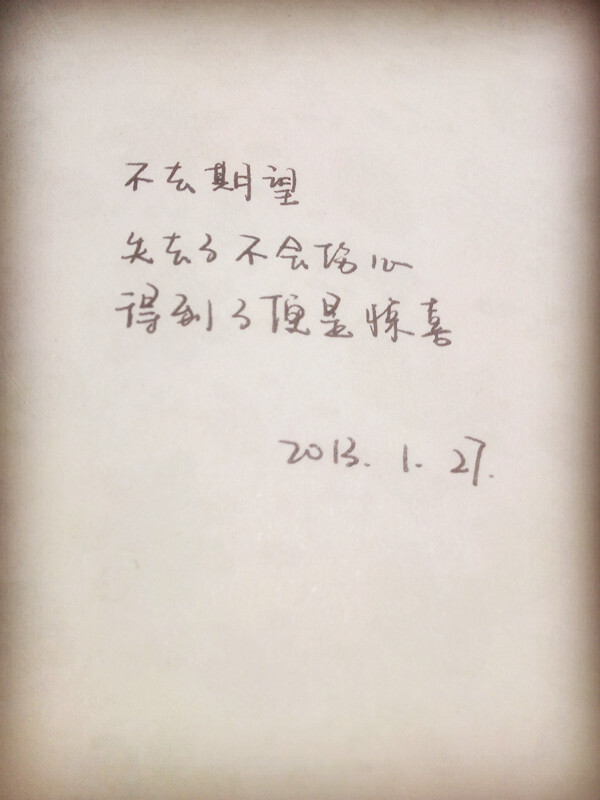 不去期望
失去了不会伤心
得到了便是惊喜
2013.1.27.